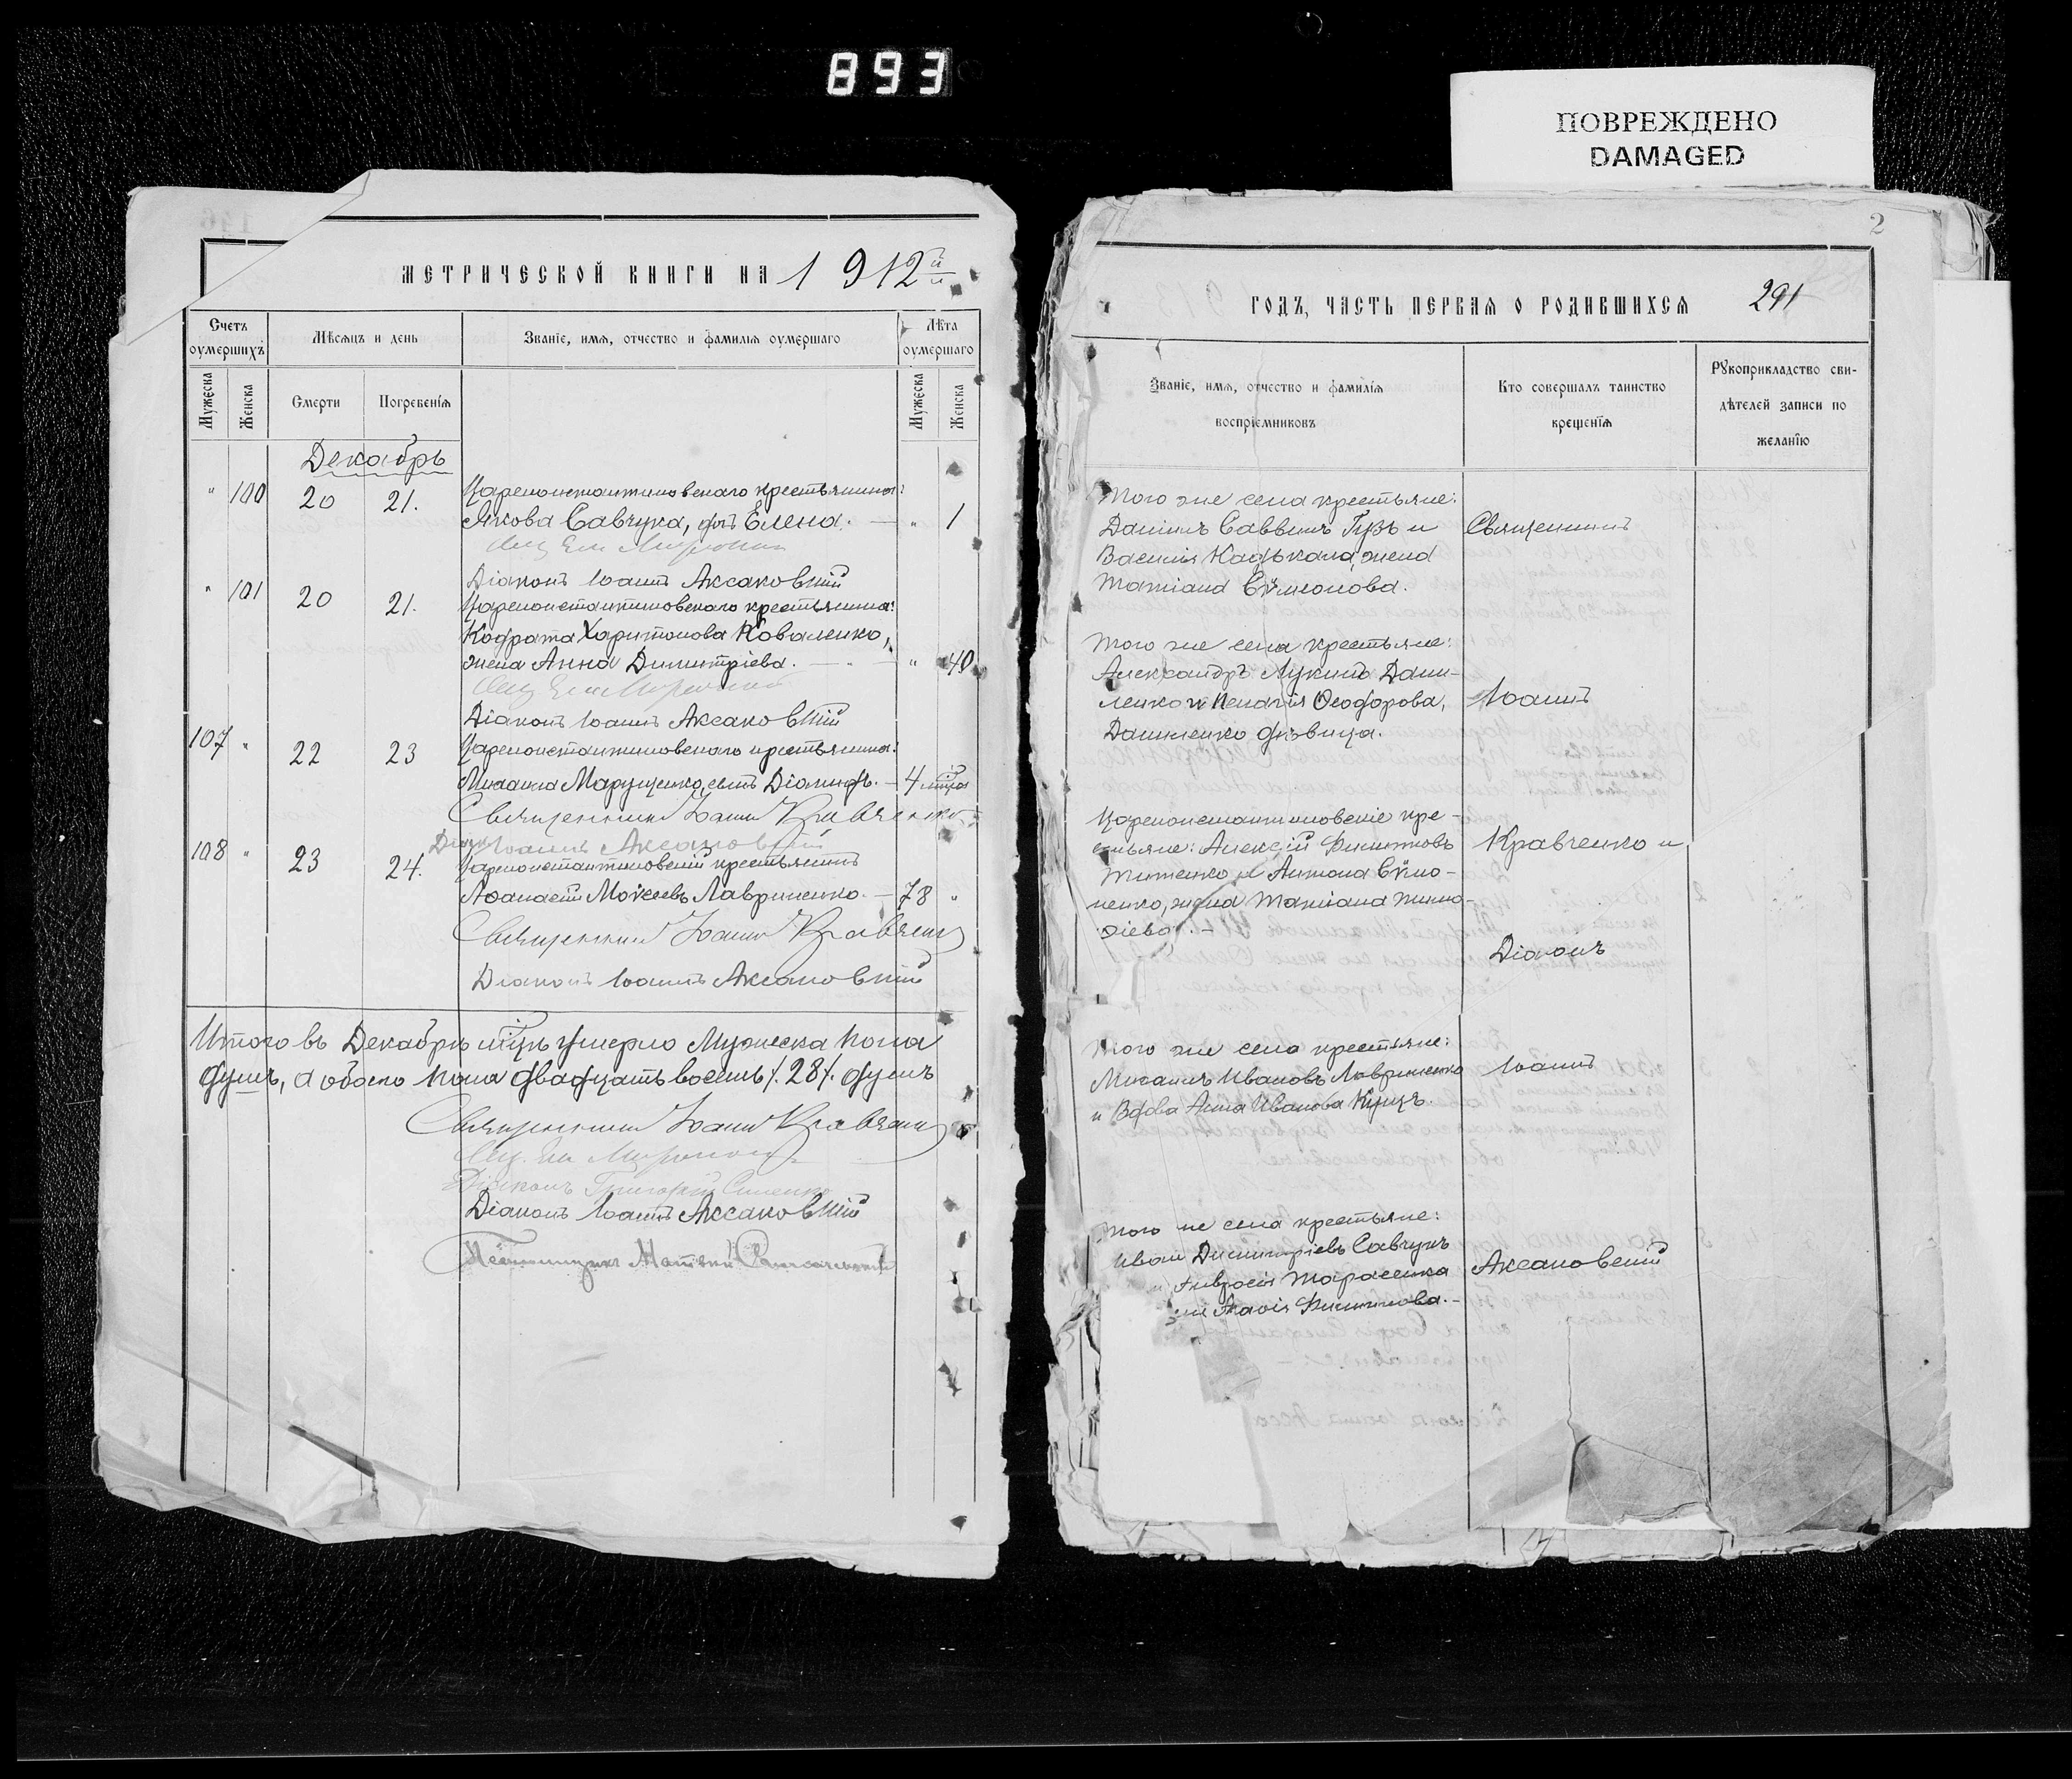 893
ПОВРЕЖДЕНО
DAMAGED
МЕТРИЧЕСКОЙ КНИГИ НА 1912й
Счетъ оумершихъ
Мѣсяцъ и день
Званіе, имя, отчество и фамилія оумершаго
Лѣта оумершаго
Мужеска
Женска
Смерти
Погребенія
Мужеска
Женска
Декабрь
" 100 20 21. Цареконстантиновскаго крестьянина:
Якова Савчука, дочь Елена. — " 1
Діаконъ Іоаннъ Аксаковскій
" 101 20 21. Цареконстантиновскаго крестьянина:
Кодрата Харитонова Коваленко,
жена Анна Димитріева. — " 40
Діаконъ Іоаннъ Аксаковскій
107 " 22 23 Цареконстантиновскаго крестьянина:
Михаила Марущенко, сынъ Діомидъ. — 4
Священникъ Іоаннъ Кравченко
Діаконъ Іоаннъ Аксаковскій
108 " 23 24. Цареконстантиновскій крестьянинъ
Аѳанасій Мокеевъ Лавриненко. — 78 "
Священникъ Іоаннъ Кравченко
Діаконъ Іоаннъ Аксаковскій
Итого въ Декабрѣ мѣцѣ умерло Мужеска пола
душъ, а обоего пола двадцать восемь /.28/. душъ
Священникъ Іоаннъ Кравченко
Діаконъ Григорій
Діаконъ Іоаннъ Аксаковскій
2
ГОДЪ, ЧАСТЬ ПЕРВАЯ О РОДИВШИХСЯ 291
Званіе, имя, отчество и фамилія
воспріемниковъ
Кто совершалъ таинство
крещенія
Рукоприкладство сви-
дѣтелей записи по
желанію
Того же села крестьяне:
Даніилъ Саввинъ Гузь и Священникъ
Василія Кадькала, жена
Татіана Сѵмеонова.
Того же села крестьяне:
Александръ Лукинъ Дани-
ленко и Пелагія Ѳеодорова, Іоаннъ
Даниленко дѣвица.
Цареконстантиновскіе кре-
стьяне: Алексій Филипповъ Кравченко и
Титенко и Антона Сѵмо-
ненко, жена Татіана Тимо-
ѳіева. —
Діаконъ
Того же села крестьяне:
Михаилъ Ивановъ Лавриненко Іоаннъ
и Вдова Анна Иванова
Того же села крестьяне:
Иванъ Димитріевъ Савчукъ
Амвросія Тарасенка Аксаковскій
Агаѳія Филиппова. —